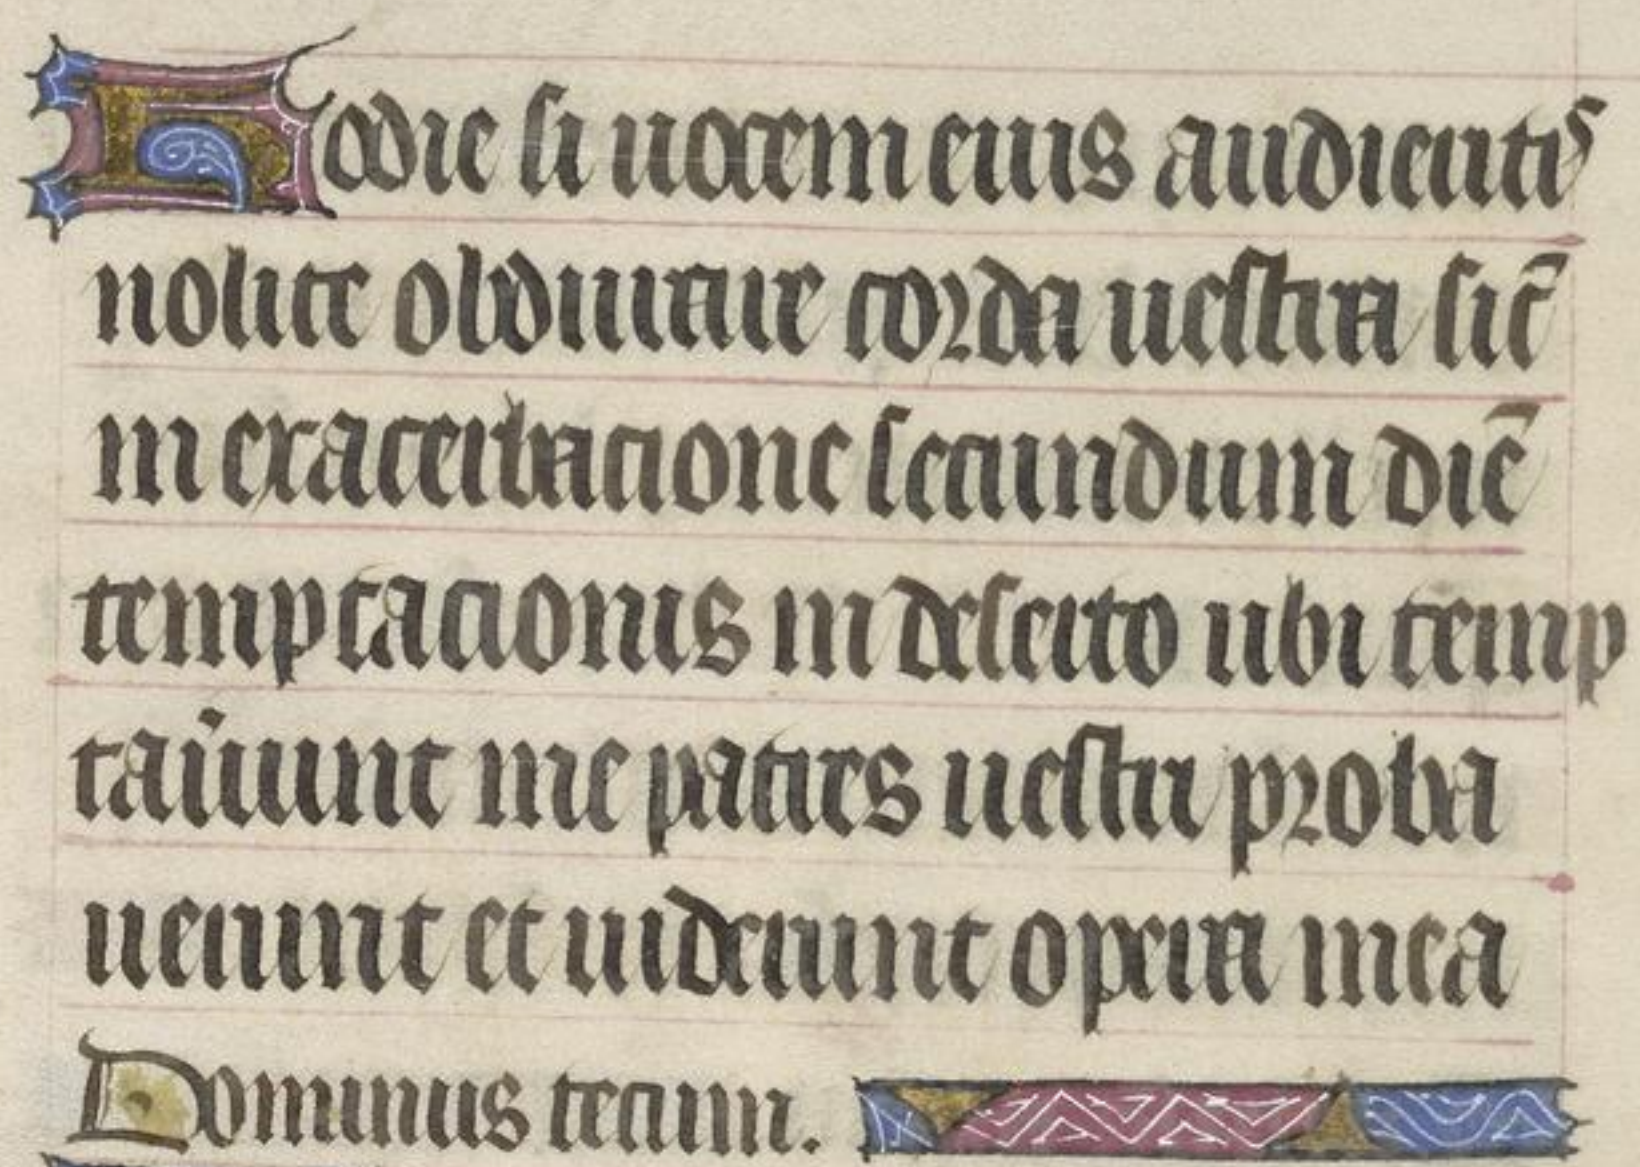 Hodie si uocem eius audieritis
nolite obdurare corda uestra sic̄
in exacerbacione secundum diē
temptacionis in deserto ubi temp
tauerunt me patres uestri proba
uerunt et uiderunt opera mea
Dominus tecum.